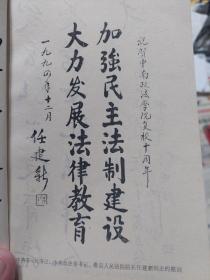 祝贺中南政法学院复校十周年
加強民主法制建设
大力发展法律教育
一九九四年十二月
任建新